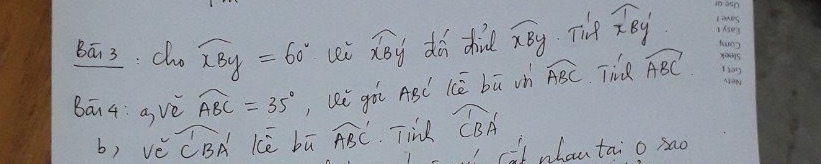 Bài 3 : Cho xBy = 60° vẽ x'By' đối đỉnh xBy. Tính x'By'.
Bài 4 : a, Vẽ ABC = 35°, vẽ góc ABC' kề bù với ABC. Tính ABC'.
b, vẽ C'BA' kề bù ABC'. Tính C'BA'
cắt nhau tại O sao